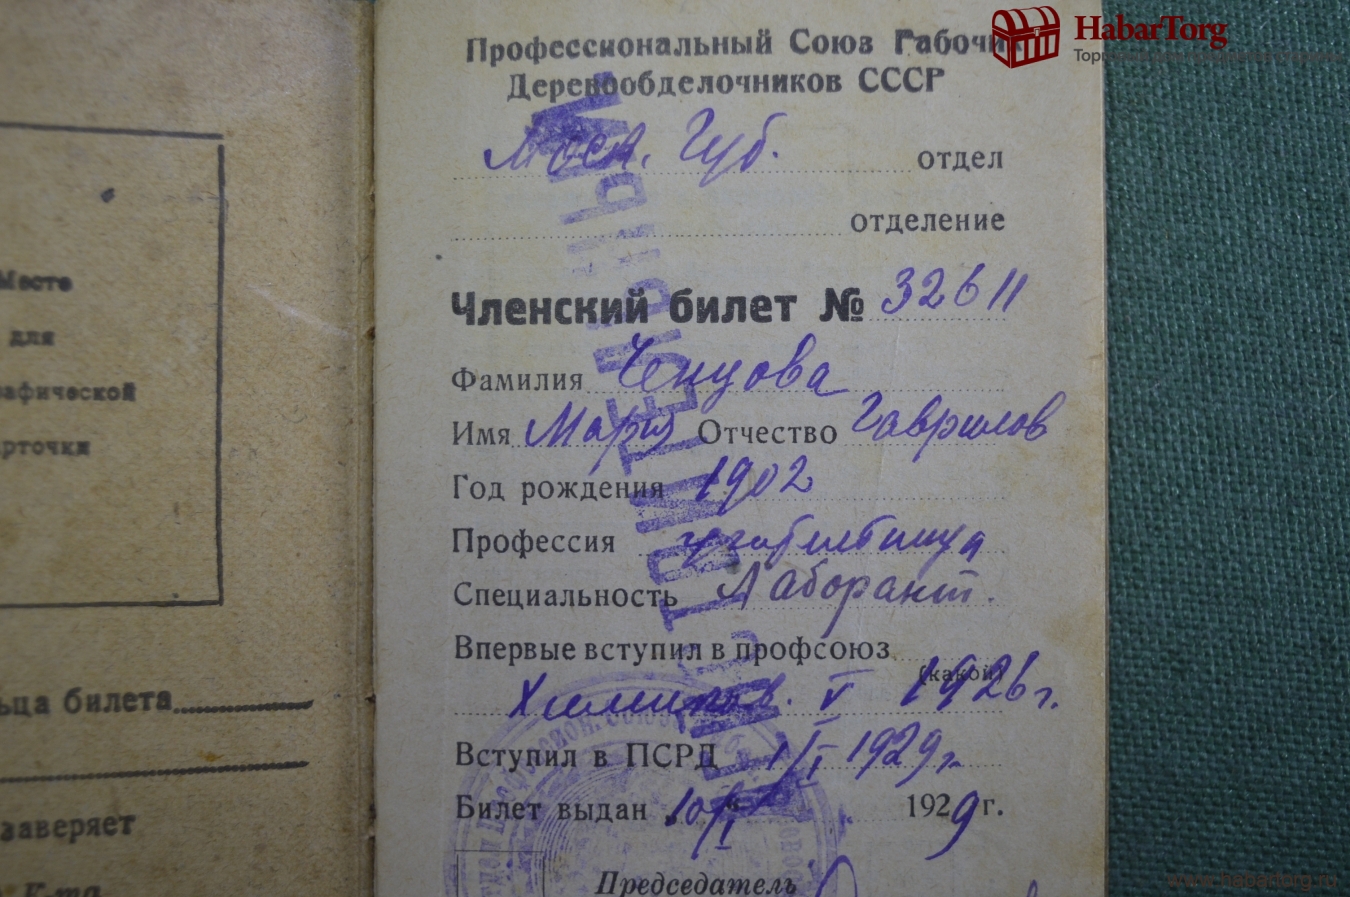 Место
для
рафической
рточки
ьца билета
заверяет
К-та
Профессиональный Союз Рабочи
Деревообделочников СССР
Моск. Губ. отдел
отделение
Членский билет № 32611
Фамилия Ченцова
Имя Мария Отчество Гаврилов
Год рождения 1902
Профессия
Специальность Лаборант.
Впервые вступил в профсоюз
(какой)
Химиков. V 1926 г.
Вступил в ПСРД 1/I 1929 г.
Билет выдан 10/I 1929 г.
Председатель
HabarTorg
www.habartorg.ru